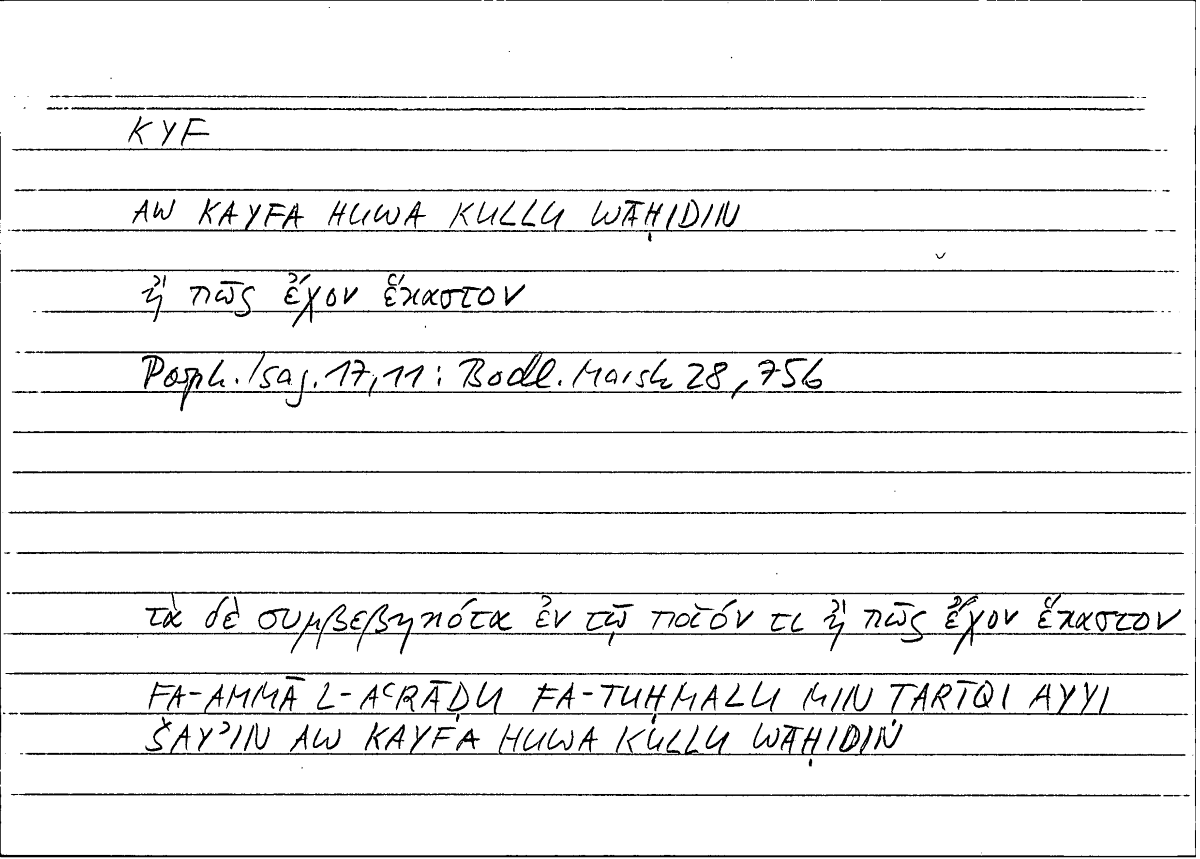 KYF
AW KAYFA HUWA KULLU WĀḤIDIN
ἢ πῶς ἔχον ἕκαστον
Porph. Isag. 17, 11 : Bodl. Marsh 28, 756
τὰ δὲ συμβεβηκότα ἐν τῷ ποῖόν τι ἢ πῶς ἔχον ἕκαστον
FA-AMMĀ L-AʿRĀḌU FA-TUḤMALU MIN ṬARĪQI AYYI
ŠAYʾIN AW KAYFA HUWA KULLU WĀḤIDIN